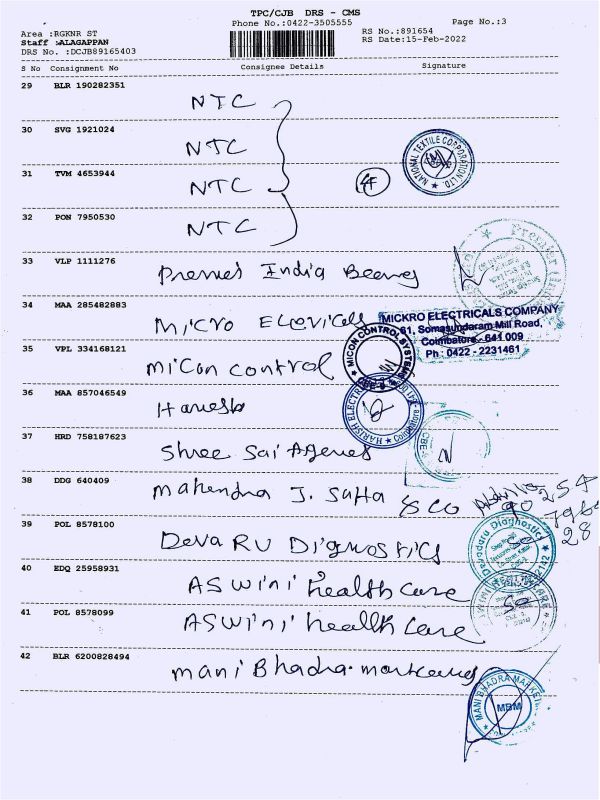 TPC/CJB DRS - CMS
Phone No.:0422-3505555
Page No.:3
Area :RGKNR ST
RS No.:891654
Staff :ALAGAPPAN
RS Date:15-Feb-2022
DRS No. :DCJB89165403
S No Consignment No Consignee Details Signature
29 BLR 190282351
NTC
30 SVG 1921024
NTC
NATIONAL TEXTILE CORPORATION LTD.
31 TVM 4653944
NTC
32 PON 7950530
NTC
33 VLP 1111276
Premier India Bearings
Premier
34 MAA 285482883
Micro Electricals
MICKRO ELECTRICALS COMPANY
61, Somasundaram Mill Road,
Coimbatore - 641 009
Ph : 0422 - 2231461
35 VPL 334168121
Micon control
MICON CONTROL SYSTEMS
36 MAA 857046549
Harish
HARISH ELECTRIC
Coimbatore
37 HRD 758187623
Shree Sai Agencies
CBE
38 DDG 640409
Mahendra J. Sutta & CO
90 254
28
39 POL 8578100
Deva RU Dignostics
Devadaru Diagnostics
40 EDQ 25958931
ASwini health care
41 POL 8578099
ASwini health care
42 BLR 6200828494
mani Bhadra
MANI BHADRA MARKETING
MBM